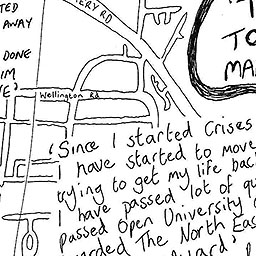 TED
AWAY
DONE
IM
VE'
ERY RD
Wellington Rd
TO
MA
'Since I started Crises
have started to move
trying to get my life bac
I have passed lot of qu
passed Open University
arded The North Eas
ward'